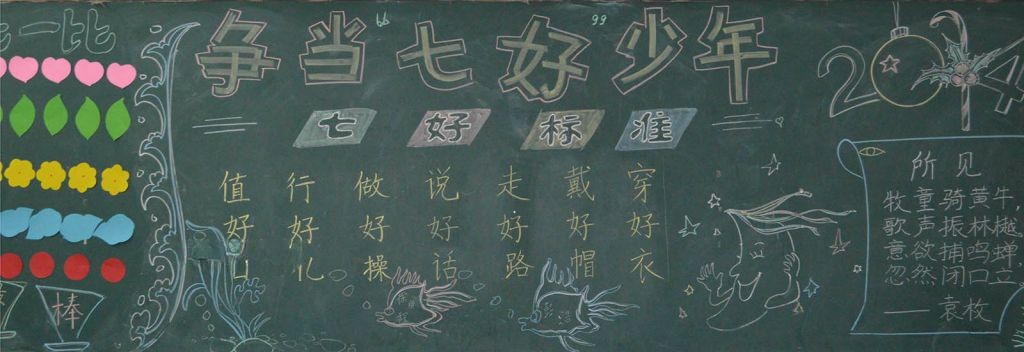 一比
争当七好少年
七好标准
值好
行好
做好操
说好话
走好路
戴好帽
穿好衣
2014
所见
牧童骑黄牛,
歌声振林樾
意欲捕鸣蝉,
忽然闭口立
——袁枚
棒